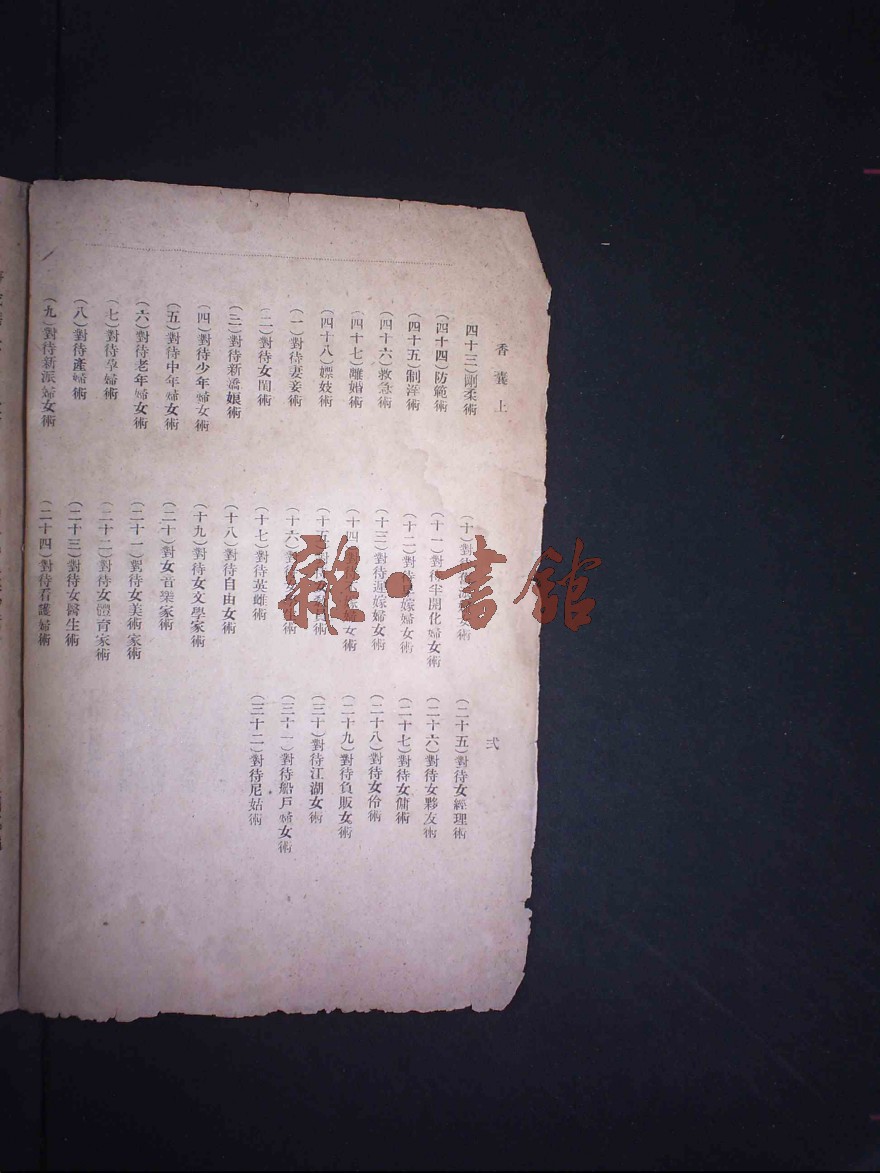 香囊上
四十三)剛柔術
(四十四)防範術
(四十五)制淫術
(四十六)救急術
(四十七)離婚術
(四十八)嫖妓術
(一)對待妻妾術
(二)對待女閨術
(三)對待新嬌娘術
(四)對待少年婦女術
(五)對待中年婦女術
(六)對待老年婦女術
(七)對待孕婦術
(八)對待產婦術
(九)對待新派婦女術
(十)對
(十一)對待半開化婦女術
(十二)對待 嫁婦女術
(十三)對待逈嫁婦女術
(十四) 女術
(十五)對待 術
(十六)對
(十七)對待英雌術
(十八)對待自由女術
(十九)對待女文學家術
(二十)對女音樂家術
(二十一)對待女美術家術
(二十二)對待女體育家術
(二十三)對待女醫生術
(二十四)對待看護婦術
弍
(二十五)對待女經理術
(二十六)對待女夥友術
(二十七)對待女傭術
(二十八)對待女伶術
(二十九)對待負販女術
(三十)對待江湖女術
(三十一)對待船戶婦女術
(三十二)對待尼姑術
雜·書館